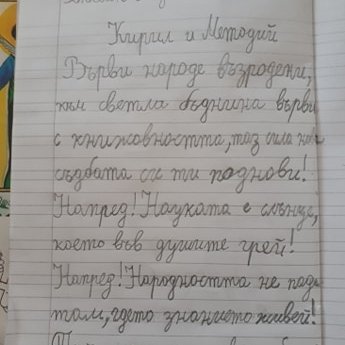 Кирил и Методий
Върви народе възродени,
към светла бъднина върви
с книжовността, таз сила нов
съдбата си ти поднови!
Напред! Науката е слънце,
което във душите грей!
Напред! Народността не пада
там, гдето знанието живей!